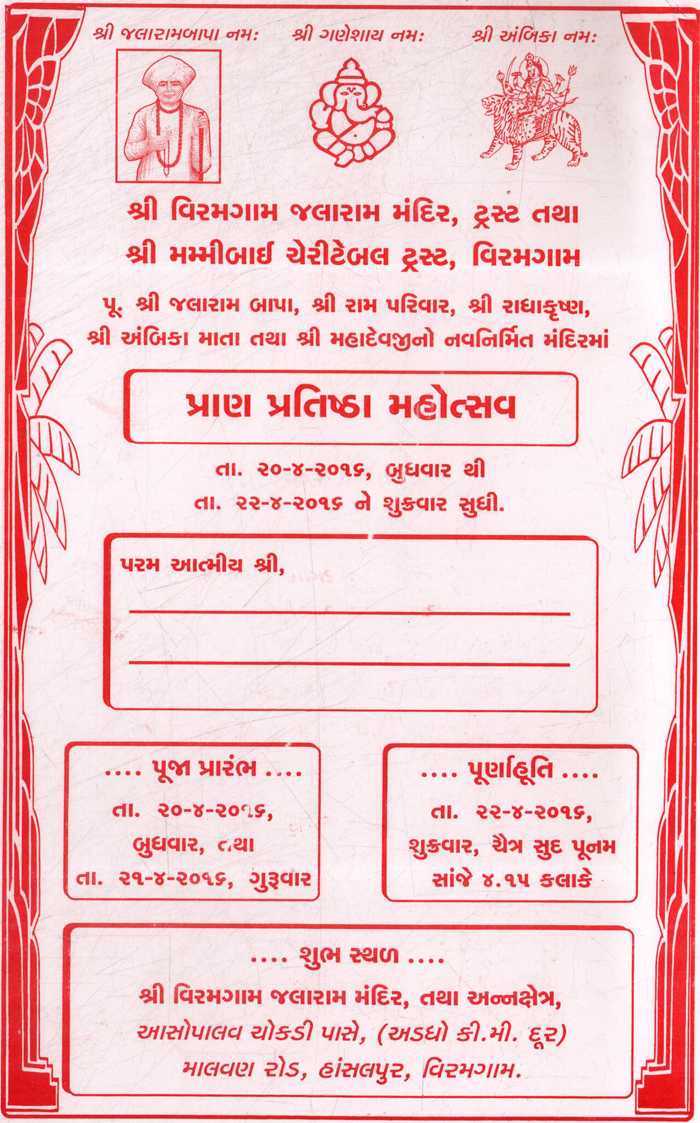 શ્રી જલારામબાપા નમ: શ્રી ગણેશાય નમ: શ્રી અંબિકા નમ:
શ્રી વિરમગામ જલારામ મંદિર, ટ્રસ્ટ તથા
શ્રી મમ્મીબાઈ ચેરીટેબલ ટ્રસ્ટ, વિરમગામ
પૂ. શ્રી જલારામ બાપા, શ્રી રામ પરિવાર, શ્રી રાધાકૃષ્ણ,
શ્રી અંબિકા માતા તથા શ્રી મહાદેવજીનો નવનિર્મિત મંદિરમાં
પ્રાણ પ્રતિષ્ઠા મહોત્સવ
તા. ૨૦-૪-૨૦૧૬, બુધવાર થી
તા. ૨૨-૪-૨૦૧૬ ને શુક્રવાર સુધી.
પરમ આત્મીય શ્રી,
.... પૂજા પ્રારંભ ....
તા. ૨૦-૪-૨૦૧૬,
બુધવાર, તથા
તા. ૨૧-૪-૨૦૧૬, ગુરૂવાર
.... પૂર્ણાહૂતિ ....
તા. ૨૨-૪-૨૦૧૬,
શુક્રવાર, ચૈત્ર સુદ પૂનમ
સાંજે ૪.૧૫ કલાકે
.... શુભ સ્થળ ....
શ્રી વિરમગામ જલારામ મંદિર, તથા અન્નક્ષેત્ર,
આસોપાલવ ચોકડી પાસે, (અડધો કી.મી. દૂર)
માલવણ રોડ, હાંસલપુર, વિરમગામ.